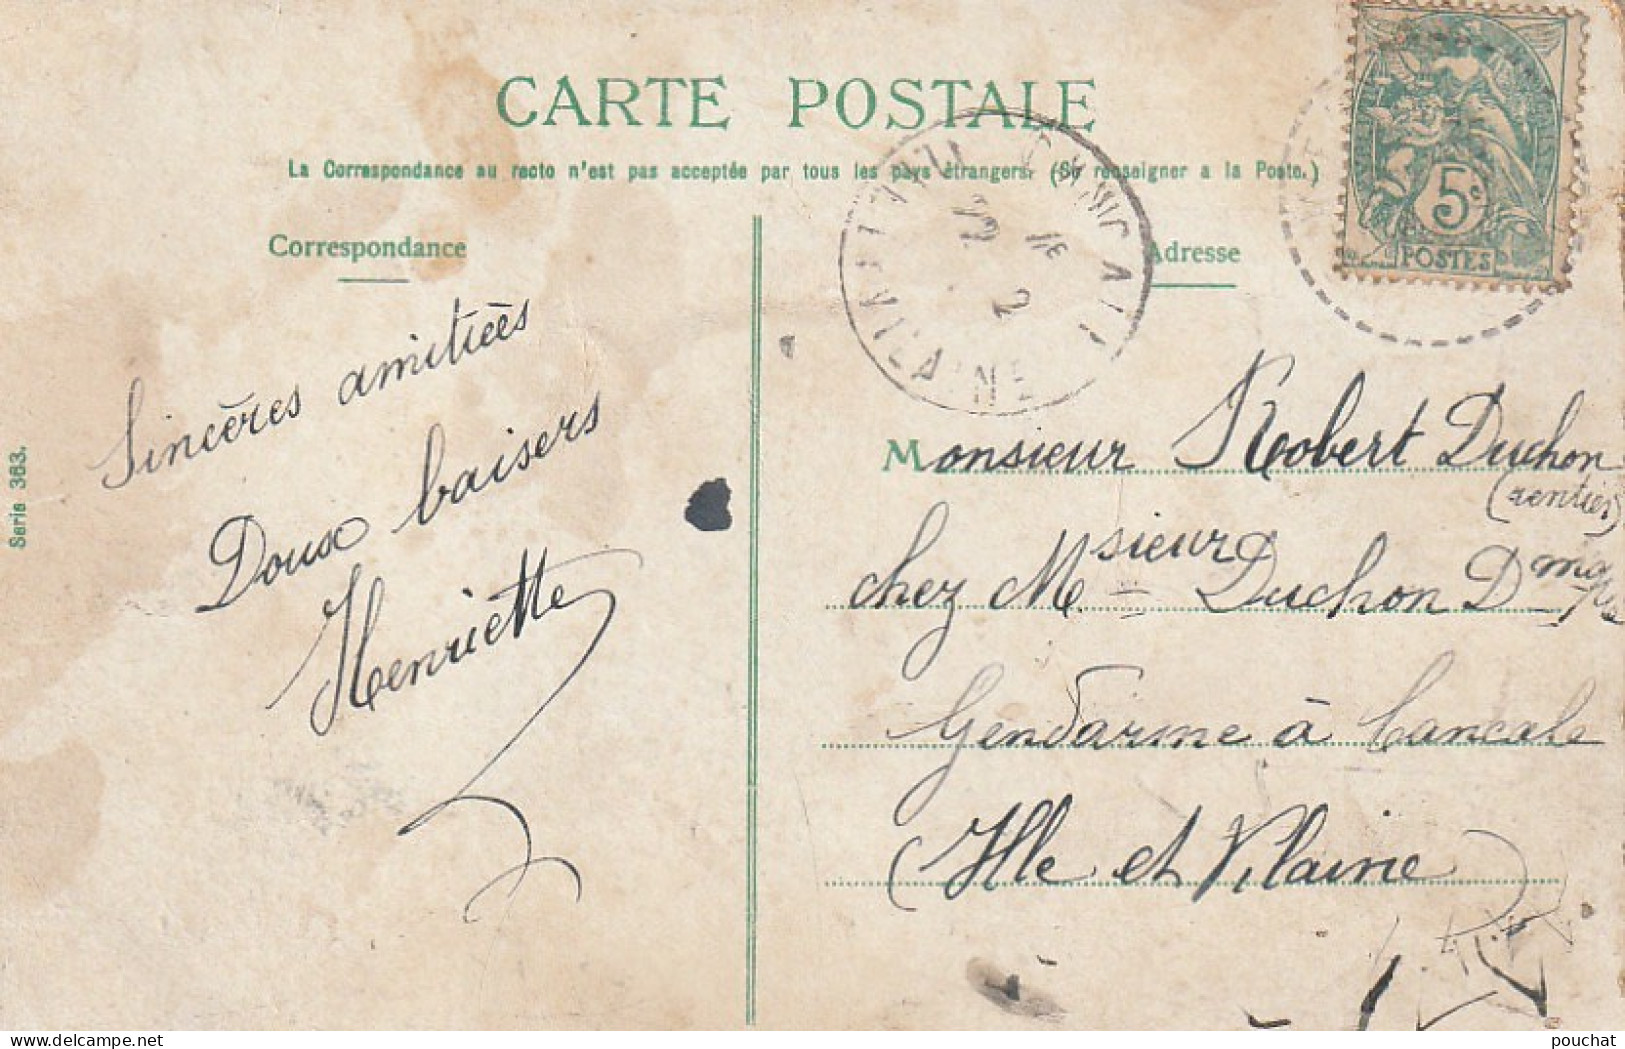 CARTE POSTALE
La Correspondance au recto n'est pas acceptée par tous les pays étrangers. (Se renseigner a la Poste.)
Correspondance
Adresse
5c
POSTES
Sincères amitieès
Doux baisers
Henriette
Serie 363.
Monsieur Robert Duchon
(rentier)
chez Msieur Duchon
Gendarme à Cancale
(Ille et Vilaine)
pouchat